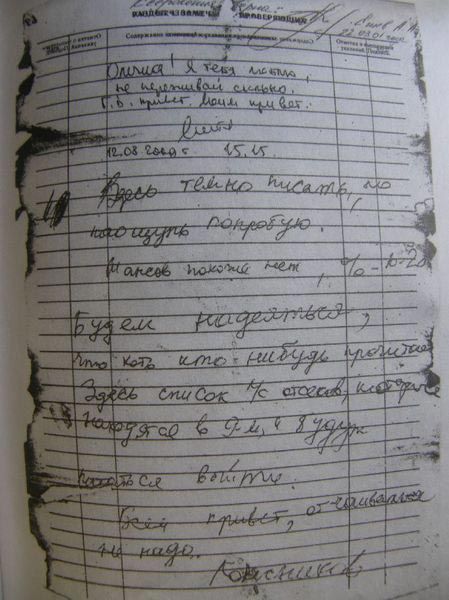 Олечка! Я тебя люблю,
не переживай сильно.
Г.В. привет. Моим привет.
12.08 2000 г 15.15.
Здесь темно писать, но
наощупь попробую.
Шансов похоже нет, % 10-20
Будем надеяться,
что хоть кто-нибудь прочитает
Здесь список л/с отсеков, которые
находятся в 9-м, и будут
пытаться выйти.
Всем привет, отчаиваться
не надо.
Колесников